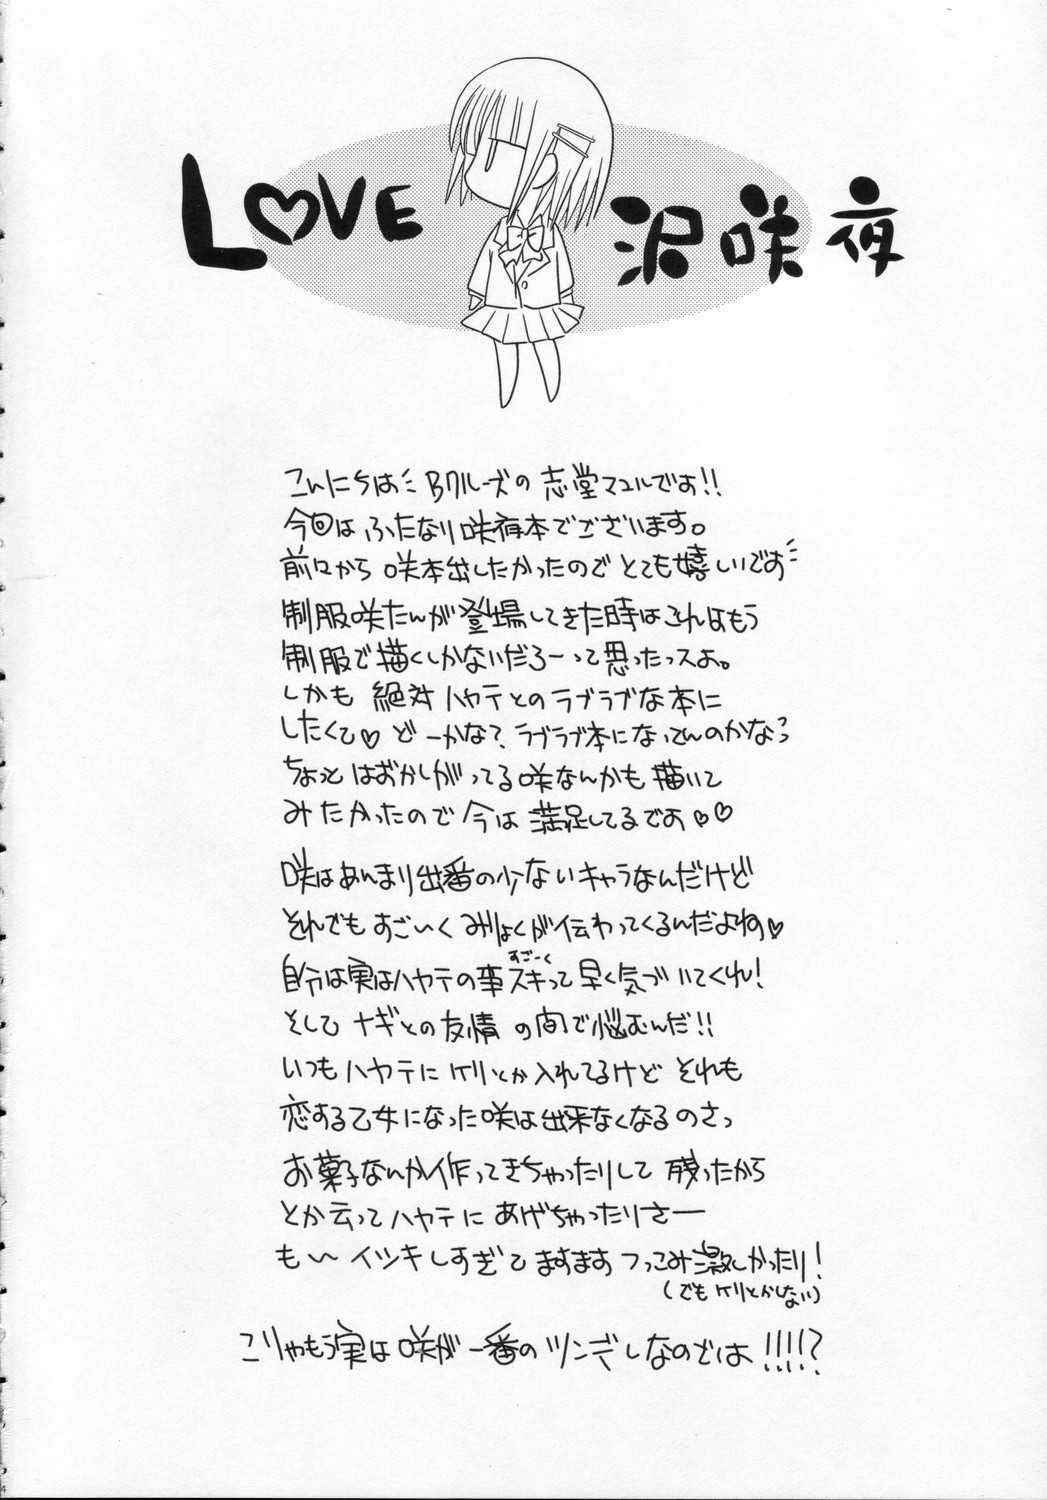 LOVE 沢咲夜
こんにちは Bクルーズの 志堂マユルです!!
今回は ふたなり咲夜本でございます。
前々から 咲本出したかったので とても嬉しいです
制服咲たんが登場してきた時はこれはもう
制服で描くしかないだろーって思ったっスよ。
しかも 絶対 ハヤテとのラブラブな本に
したくて♡ どーかな?ラブラブ本になってんのかなっ
ちょっと はずかしがってる咲なんかも描いて
みたかったので 今は満足してるです♡♡
咲はあんまり出番の少ないキャラなんだけど
それでも すごいく みりょくが伝わってくるんだよね♡
自分は実はハヤテの事スキって早く気づいてくれ!
すごーく
そして ナギとの友情 の間で悩むんだ!!
いつもハヤテにケリとか入れてるけど それも
恋する乙女になった咲は出来なくなるのさっ
お菓子なんか作ってきちゃったりして 残ったから
とか云ってハヤテに あげちゃったりさー
も〜 イツキしすぎて ますます つっこみ激しかったり!
(でもケリとかしない)
こりゃもう実は咲が一番のツンデレなのでは!!!!?